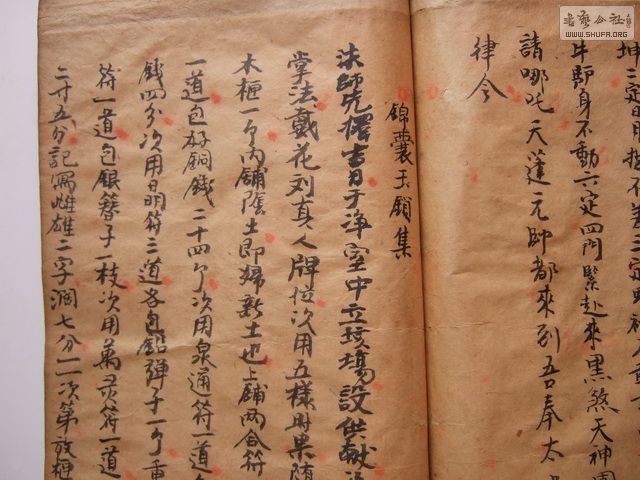 坤三定日月
牛即身不動六定四門緊赴來黑煞天神
請哪吒天蓬元帥都來到吾奉太
律令
錦囊玉鎖集
法師先擇吉日于淨室中立壇場設供献
掌法戴花刘真人牌位次用五樣時果
木櫃一个內铺陰土即婦新土也上铺两合符
一道包好銅钱二十四个次用泉通符一道
錢四分次用日月符三道各包鉛弹子一个重
符一道包銀簪子一枝次用萬灵符一道
二寸五分記寫雌雄二字濶七分一一次第放櫃
書藝公社
WWW.SHUFA.ORG